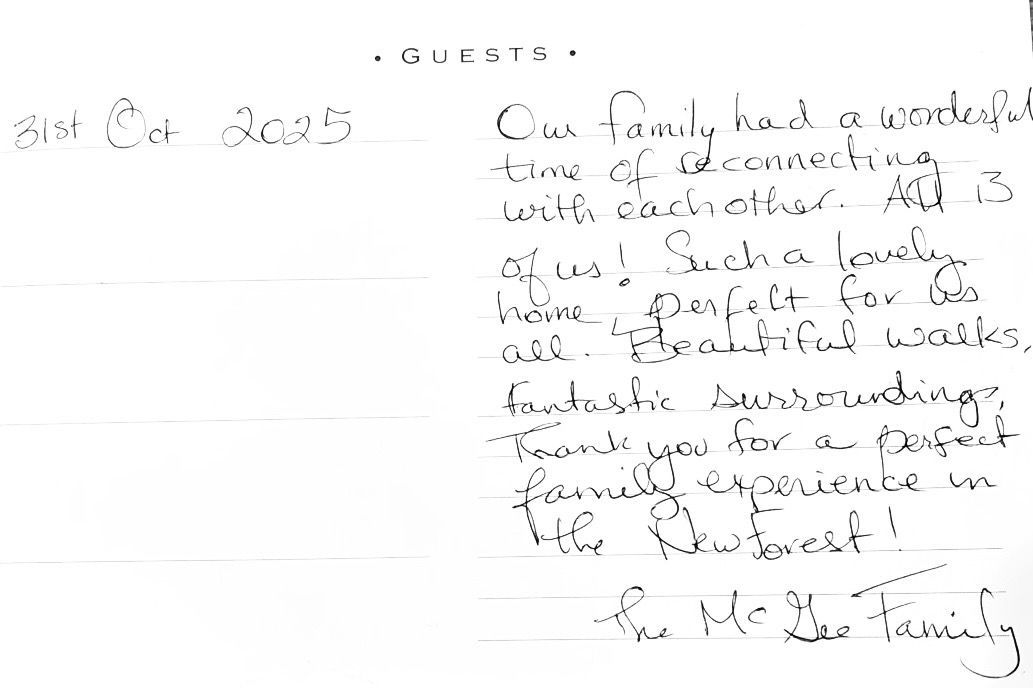 • GUESTS •
31st Oct 2025
Our family had a wonderful
time of reconnecting
with eachother. All 13
of us! Such a lovely
home, perfect for us
all. Beautiful walks,
fantastic surroundings,
Thank you for a perfect
family experience in
the New Forest!
The McGee Family